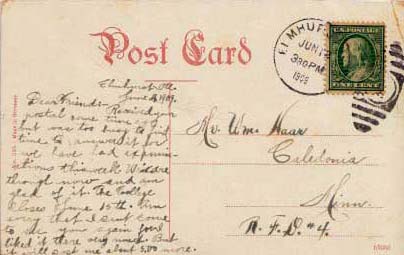 Post Card
ELMHURST
JUN
3 30 PM
1909
U.S. POSTAGE
ONE CENT
Elmhurst, Ill.
June 1909.
Dear Friends- Received your
postal some time ago
but was too busy to find
time to answer it for
we have had examin-
ations this week. We are
through now and am
glad of it. The College
closes June 15th. Am
sorry that I can't come
to see you again for I
liked it there very much. But
it will cost me about 5.00 more.
Mr. Wm. Haar
Caledonia
Minn.
R.F.D. #4.